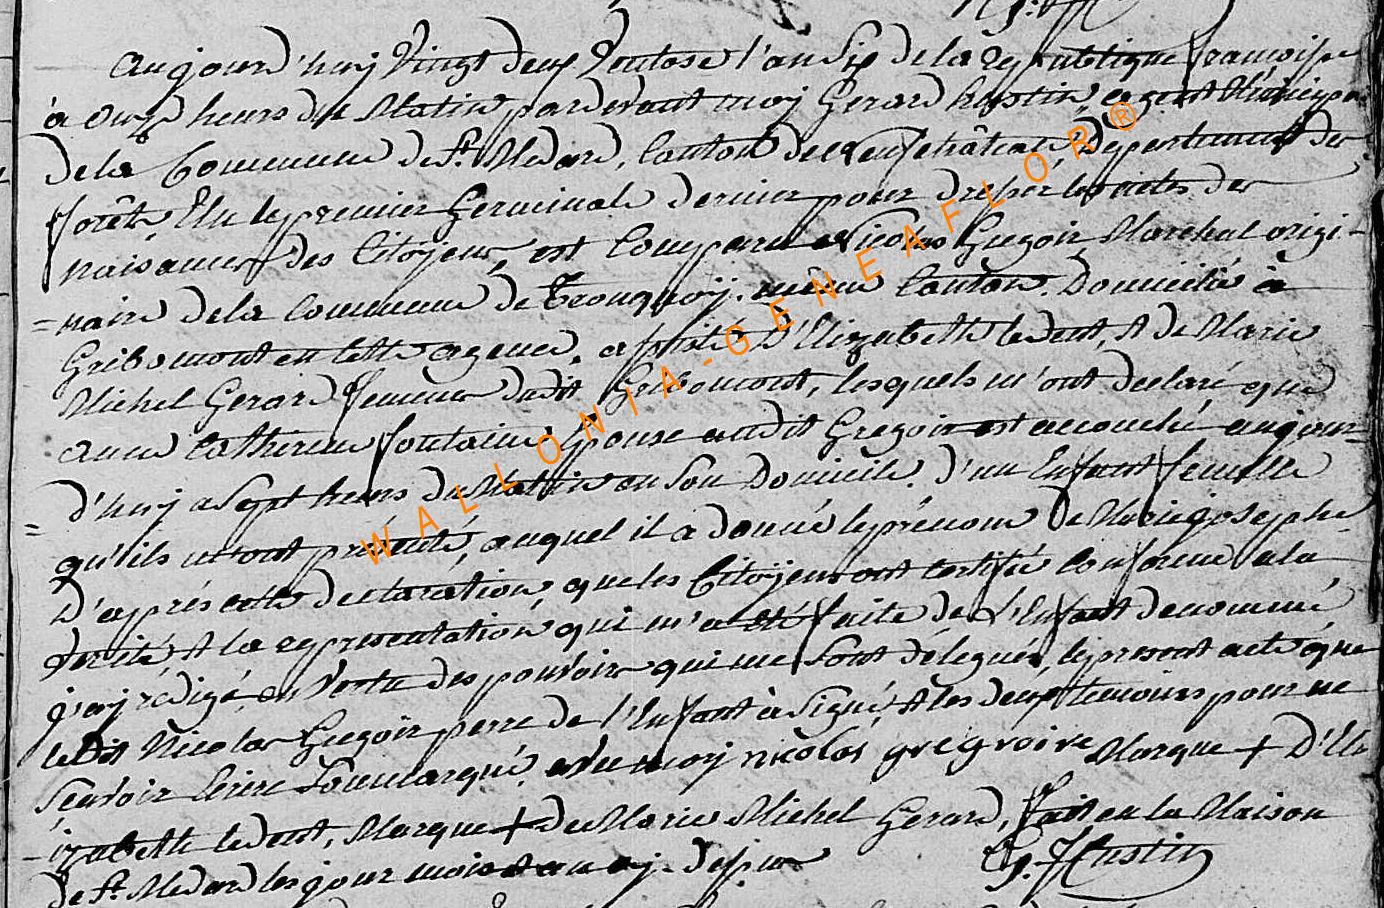 aujourd'huy Vingt deux Ventose l'an Six de la republique francoise
à onze heurs du Matin pardevant moy Gerard hustin, agent Municipal
de la Commune de St Medard, Canton de Neufchâteau, Departement des
forêts, Elu le premier Germinal dernier pour dresser les actes des
naisances des Citoyens, est Comparu Nicolas Gregoir Marchal origi-
=naire de la Commune de Tronquoy, même Canton. Domicilié à
Gribomont en cette agence, assisté d'Elizabeth ledent, & de Marie
Michel Gerard femmes dudit Gribomont, lesquels m'ont declaré que
anne Catherine fontaine Epouse audit Gregoir est accouché aujour=
=d'huy a Sept heurs du Matin en Son Domicile, d'un Enfant femelle
qu'ils m'ont presenté, auquel il a donné le prénom de Marie joseph
D'après cette declaration, que les Citoyens ont certifié conforme a la
verité, & la representation qui m'a été faite de L'Enfant denommé
j'ay rédigé, en Vertu des pouvoirs qui me Sont délegués, le present acte que
ledit Nicolas Gregoir perre de l'Enfant à Signé, & les deux temoins pour ne
Scavoir Ecrire Sousmarqué, avec moy nicolas gregroire Marque + D'El
-izabeth ledent, Marque + de Marie Michel Gerard, fait en la Maison
de St Medard les jour mois & an
G. J. Hustin
WALLONIA-GENEAFLOR®